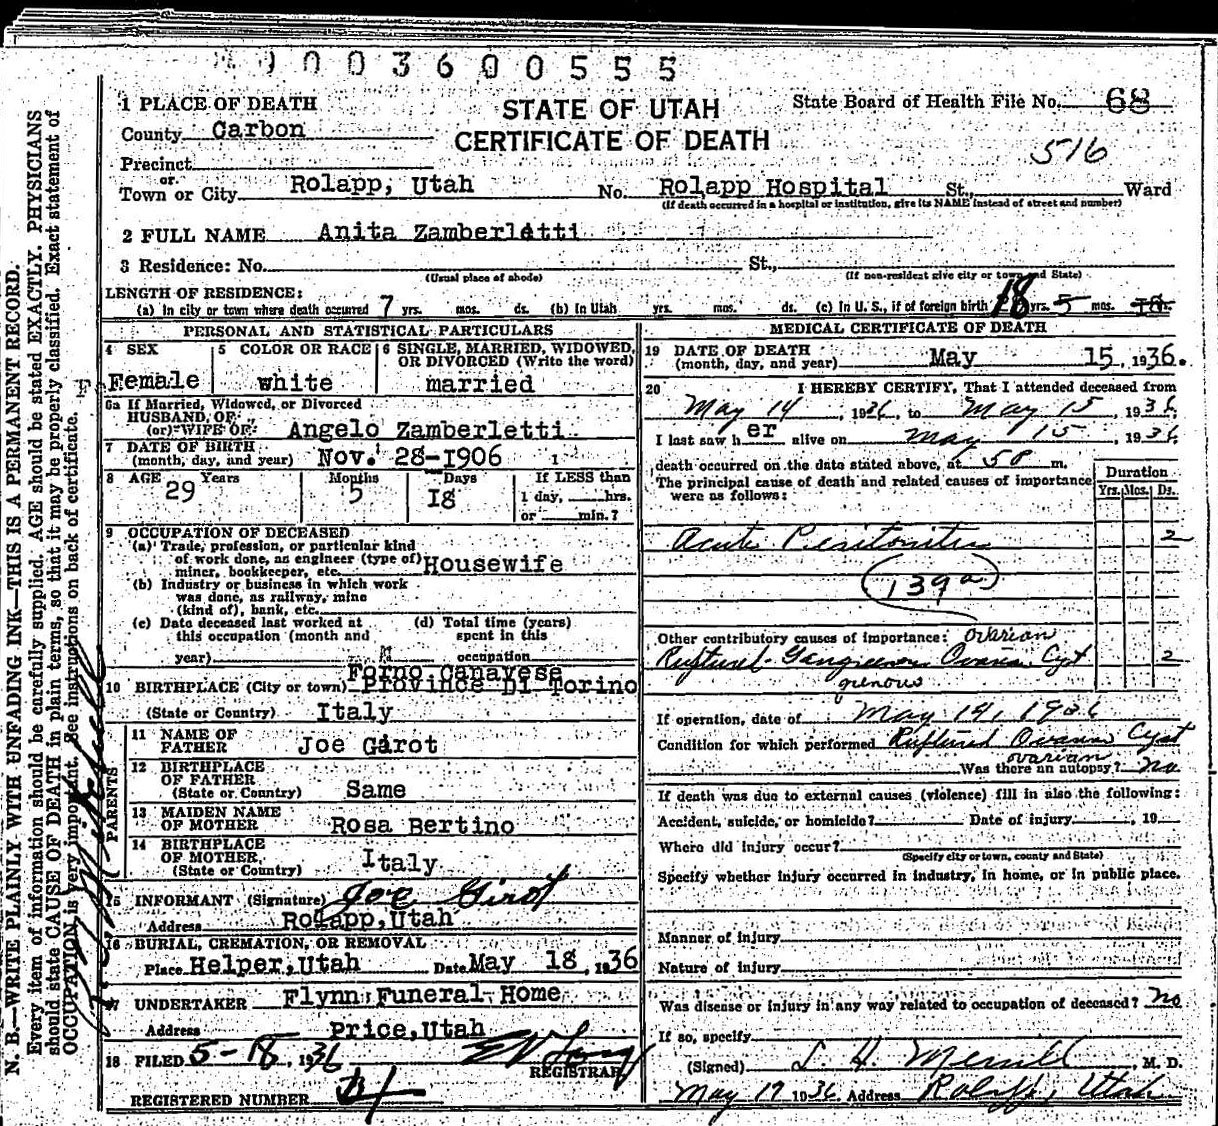 003600555
1 PLACE OF DEATH
STATE OF UTAH
State Board of Health File No. 68
County Carbon
CERTIFICATE OF DEATH
516
Precinct
or
Town or City Rolapp, Utah No. Rolapp Hospital St., Ward
(If death occurred in a hospital or institution, give its NAME instead of street and number)
2 FULL NAME Anita Zamberletti
3 Residence: No. St.,
(Usual place of abode) (If non-resident give city or town and State)
LENGTH OF RESIDENCE:
(a) In city or town where death occurred 7 yrs. mos. ds. (b) In Utah yrs. mos. ds. (c) In U. S., if of foreign birth 18 yrs. 5 mos. 18 ds.
PERSONAL AND STATISTICAL PARTICULARS
4 SEX Female
5 COLOR OR RACE white
6 SINGLE, MARRIED, WIDOWED, OR DIVORCED (Write the word) married
6a If Married, Widowed, or Divorced
HUSBAND OF
(or) WIFE OF Angelo Zamberletti
7 DATE OF BIRTH
(month, day, and year) Nov. 28-1906
8 AGE Years 29 Months 5 Days 18 If LESS than
1 day, hrs.
or min.?
9 OCCUPATION OF DECEASED
(a) Trade, profession, or particular kind
of work done, as engineer (type of)
miner, bookkeeper, etc. Housewife
(b) Industry or business in which work
was done, as railway, mine
(kind of), bank, etc.
(c) Date deceased last worked at
this occupation (month and
year)
(d) Total time (years)
spent in this
occupation
Forno Canavese
10 BIRTHPLACE (City or town) Province Di Torino
(State or Country) Italy
PARENTS
11 NAME OF
FATHER Joe Girot
12 BIRTHPLACE
OF FATHER
(State or Country) Same
13 MAIDEN NAME
OF MOTHER Rosa Bertino
14 BIRTHPLACE
OF MOTHER
(State or Country) Italy
15 INFORMANT (Signature) Joe Girot
Address Rolapp, Utah
16 BURIAL, CREMATION, OR REMOVAL
Place Helper, Utah Date May 18, 1936
17 UNDERTAKER Flynn Funeral Home
Address Price, Utah
18 FILED 5-18, 1936
REGISTRAR
REGISTERED NUMBER
MEDICAL CERTIFICATE OF DEATH
19 DATE OF DEATH
(month, day, and year) May 15, 1936.
20 I HEREBY CERTIFY, That I attended deceased from
May 14, 1936, to May 15, 1936,
I last saw her alive on May 15, 1936,
death occurred on the date stated above, at 5 P m.
The principal cause of death and related causes of importance
were as follows:
Duration
Yrs. Mos. Ds.
Acute Peritonitis 2
139a
Other contributory causes of importance: ovarian
Ruptured Gangrenous Ovarian Cyst 2
grenous
If operation, date of May 14, 1936
Condition for which performed Ruptured Ovarian Cyst
ovarian
Was there an autopsy? no
If death was due to external causes (violence) fill in also the following:
Accident, suicide, or homicide? Date of injury , 19
Where did injury occur?
(Specify city or town, county and State)
Specify whether injury occurred in industry, in home, or in public place.
Manner of injury
Nature of injury
Was disease or injury in any way related to occupation of deceased? no
If so, specify
(Signed) L. H. Merrill, M. D.
May 17 1936 Address Rolapp, Utah
N. B.—WRITE PLAINLY WITH UNFADING INK—THIS IS A PERMANENT RECORD.
Every item of information should be carefully supplied. AGE should be stated EXACTLY. PHYSICIANS
should state CAUSE OF DEATH in plain terms, so that it may be properly classified. Exact statement of
OCCUPATION is very important. See instructions on back of certificate.